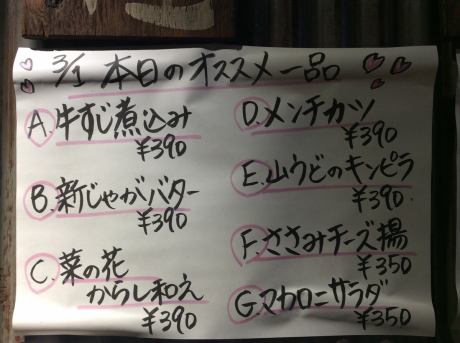 3/1 本日のオススメ一品
A. 牛すじ煮込み
¥390
B. 新じゃがバター
¥390
C. 菜の花
からし和え
¥390
D. メンチカツ
¥390
E. 山うどのキンピラ
¥390
F. ささみチーズ揚
¥350
G. マカロニサラダ
¥350